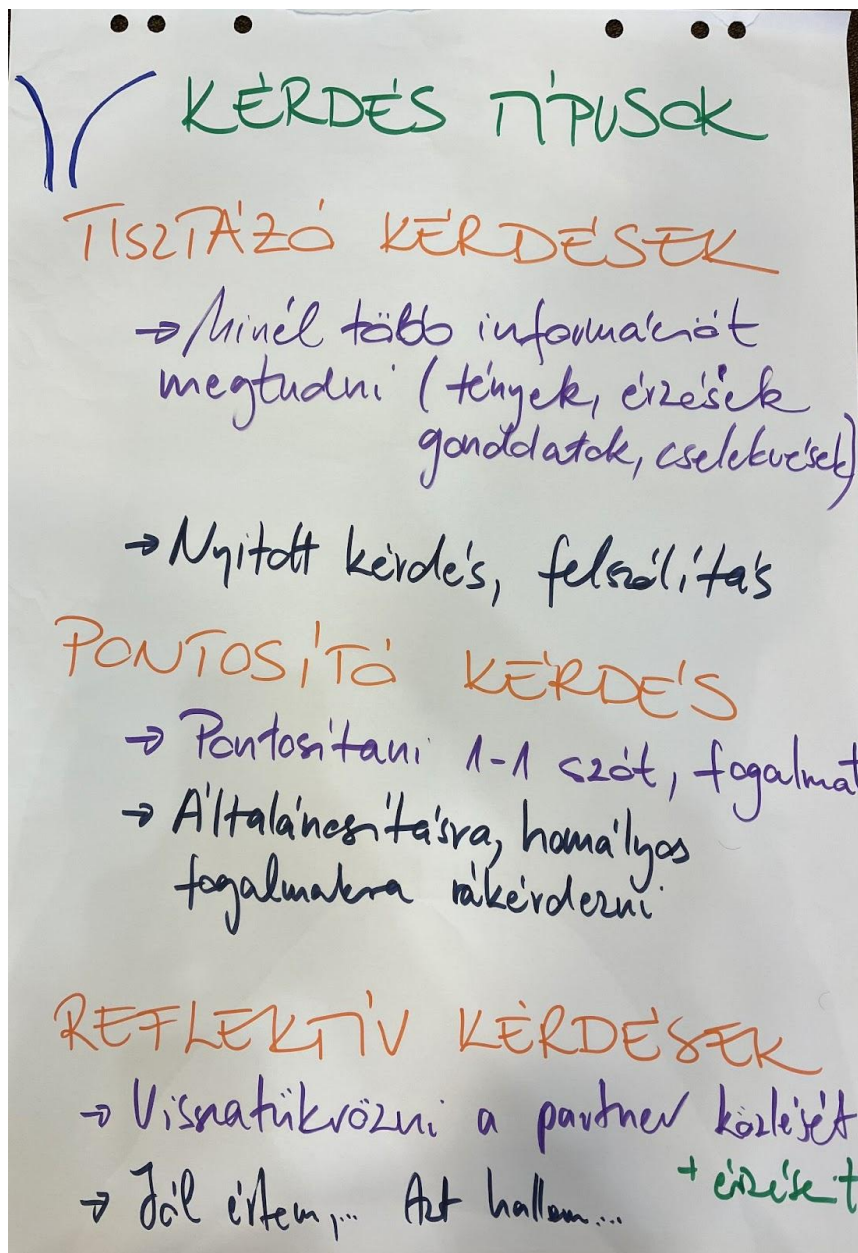 KÉRDÉS TÍPUSOK
TISZTÁZÓ KÉRDÉSEK
→ Minél több információt
megtudni (tények, érzések
gondolatok, cselekvések)
→ Nyitott kérdés, felszólítás
PONTOSÍTÓ KÉRDÉS
→ Pontosítani 1-1 szót, fogalmat
→ Általánosításra, homályos
fogalmakra rákérdezni
REFLEKTÍV KÉRDÉSEK
→ Visszatükrözni a partner közlését
+ érzését
→ Jól értem,... Azt hallom...